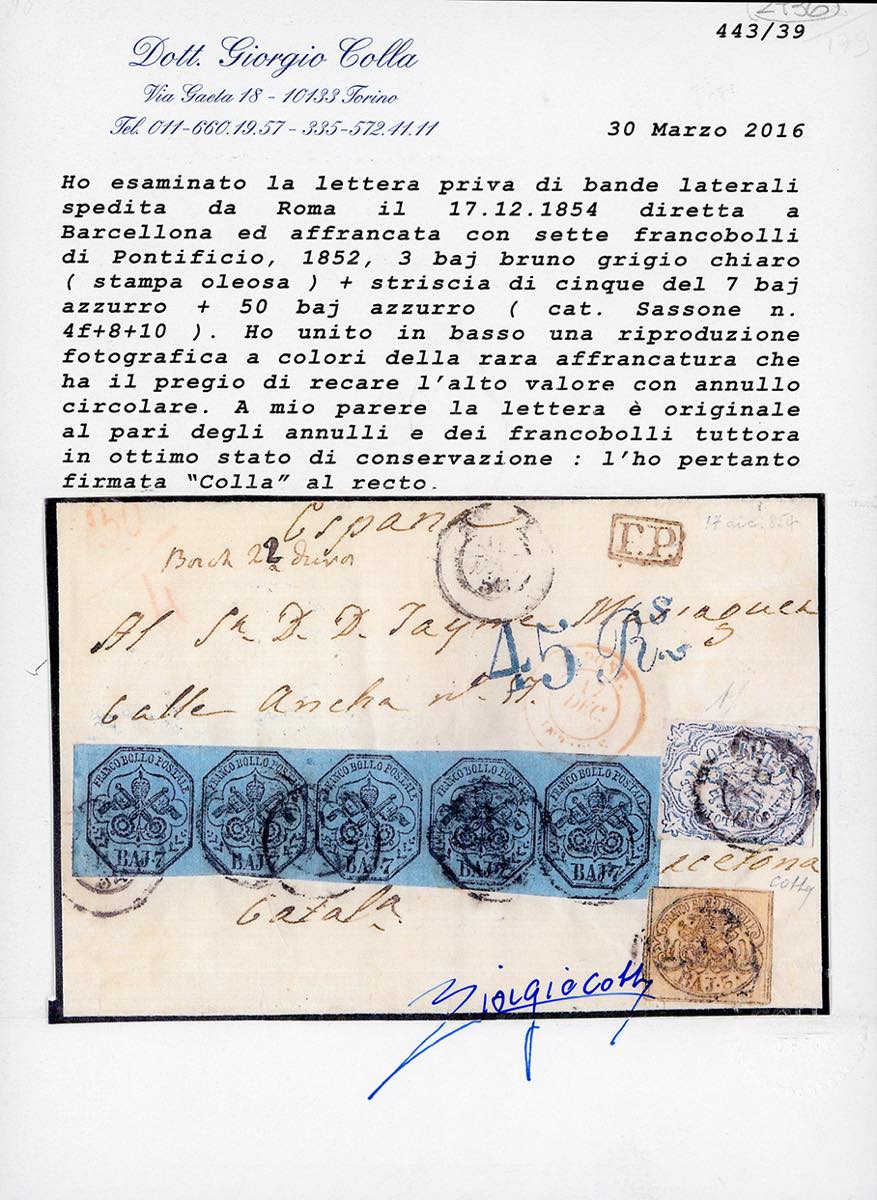 443/39
Dott. Giorgio Colla
Via Gaeta 18 - 10133 Torino
Tel. 011-660.19.57 - 335-572.41.11
30 Marzo 2016
Ho esaminato la lettera priva di bande laterali
spedita da Roma il 17.12.1854 diretta a
Barcellona ed affrancata con sette francobolli
di Pontificio, 1852, 3 baj bruno grigio chiaro
( stampa oleosa ) + striscia di cinque del 7 baj
azzurro + 50 baj azzurro ( cat. Sassone n.
4f+8+10 ). Ho unito in basso una riproduzione
fotografica a colori della rara affrancatura che
ha il pregio di recare l'alto valore con annullo
circolare. A mio parere la lettera è originale
al pari degli annulli e dei francobolli tuttora
in ottimo stato di conservazione : l'ho pertanto
firmata “Colla” al recto.
17 dic. 854
España
P.P.
Al Sr. D. D. Jayme
45 Rs
Calle Ancha nº
DEC.
FRANCO BOLLO POSTALE FRANCO BOLLO POSTALE FRANCO BOLLO POSTALE FRANCO BOLLO POSTALE FRANCO BOLLO POSTALE
BAJ. 7 BAJ. 7 BAJ. 7 BAJ. 7 BAJ. 7
Colla
Catalª
FRANCO BOLLO POSTALE
BAJ. 3
Giorgio Colla